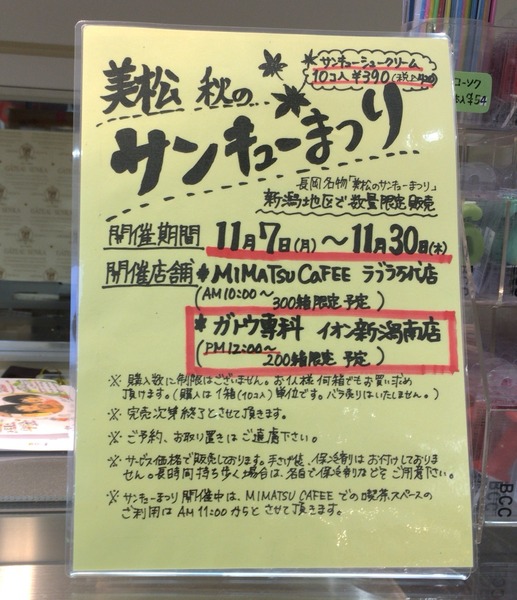 サンキューシュークリーム
10コ入 ¥390
美松 秋の
サンキューまつり
長岡名物「美松のサンキューまつり」
新潟地区で数量限定販売
開催期間 11月7日(月)〜11月30日(水)
開催店舗 * MIMATSU CAFEE ラブラ万代店
(AM10:00〜 300箱限定予定)
* ガトウ専科 イオン新潟南店
(PM12:00〜 200箱限定 予定)
※ 購入数に制限はございません。お1人様何箱でもお買い求め
頂けます。(購入は1箱(10コ入)単位です。バラ売りはいたしません。)
※ 完売次第終了とさせて頂きます。
※ ご予約、お取り置きはご遠慮下さい。
※ サービス価格で販売しております。手さげ袋、保冷剤はお付けしておりま
せん。長時間持ち歩く場合は、各自で保冷剤などをご用意下さい。
※ サンキューまつり開催中は、MIMATSU CAFEE での喫茶スペースの
ご利用は AM 11:00からとさせて頂きます。
ローソク
¥54
BCC